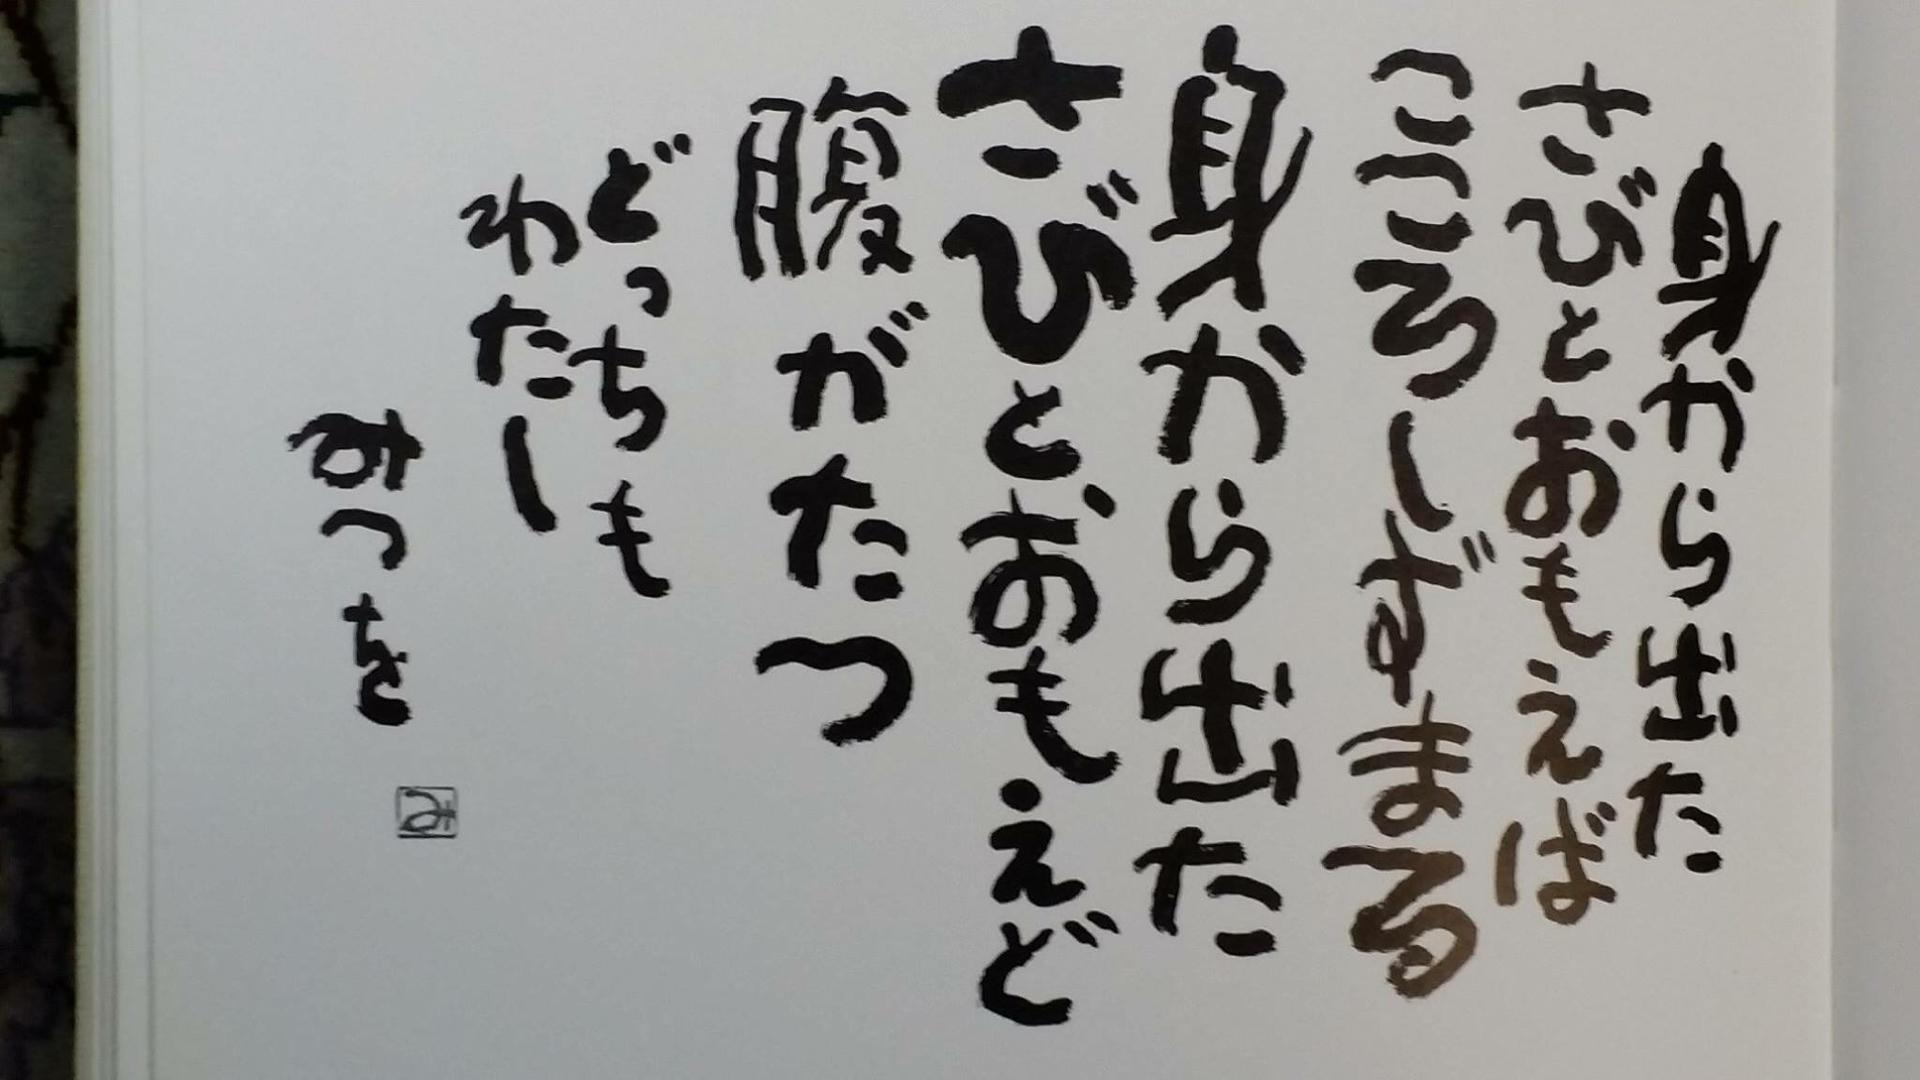 身から出た
さびとおもえば
こころしずまる
身から出た
さびとおもえど
腹がたつ
どっちも
わたし
みつを
み